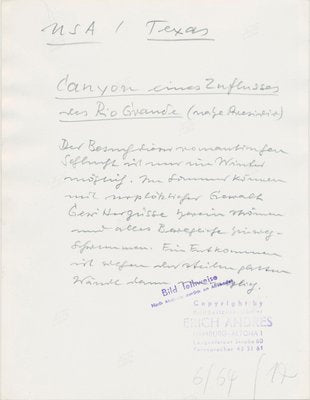 USA / Texas
Canyon eines Zuflusses
des Rio Grande (nahe Presidio)
Der Besuch dieser romantischen
Schlucht ist nur im Winter
möglich. Im Sommer können
mit urplötzlicher Gewalt
Gewittergüsse herein strömen
und alles Bewegliche hinweg-
schwemmen. Ein Entkommen
ist wegen der steilen glatten
Wände dann
Bild Teilweise
Nach
Copyright by
ERICH ANDRES
HAMBURG-ALTONA 1
6/64 / 17